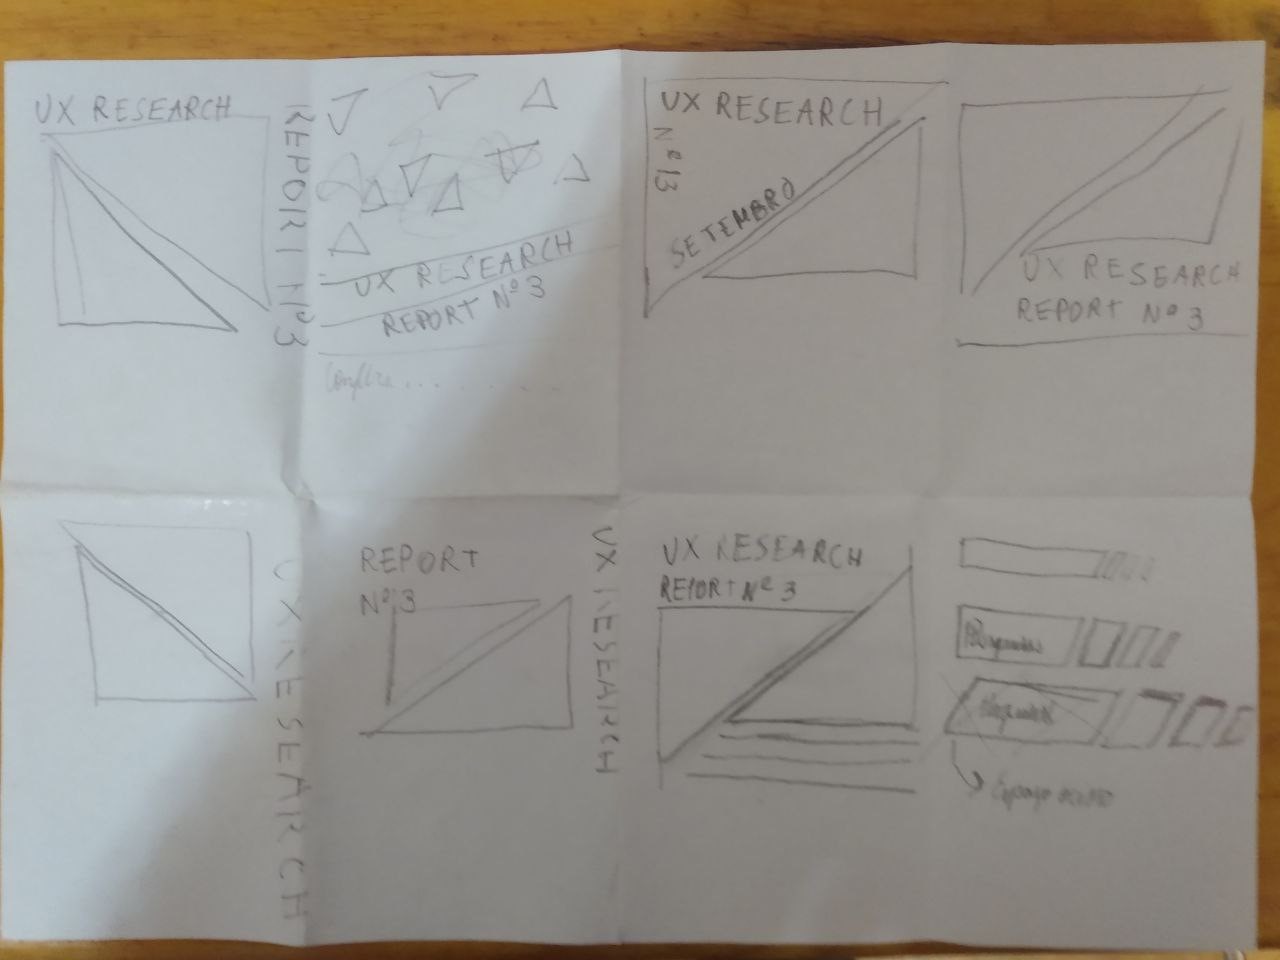 UX RESEARCH
REPORT Nº3
UX RESEARCH
REPORT Nº 3
UX RESEARCH
Nº 13
SETEMBRO
UX RESEARCH
REPORT Nº 3
UX RESEARCH
REPORT
Nº 3
UX RESEARCH
UX RESEARCH
REPORT Nº 3